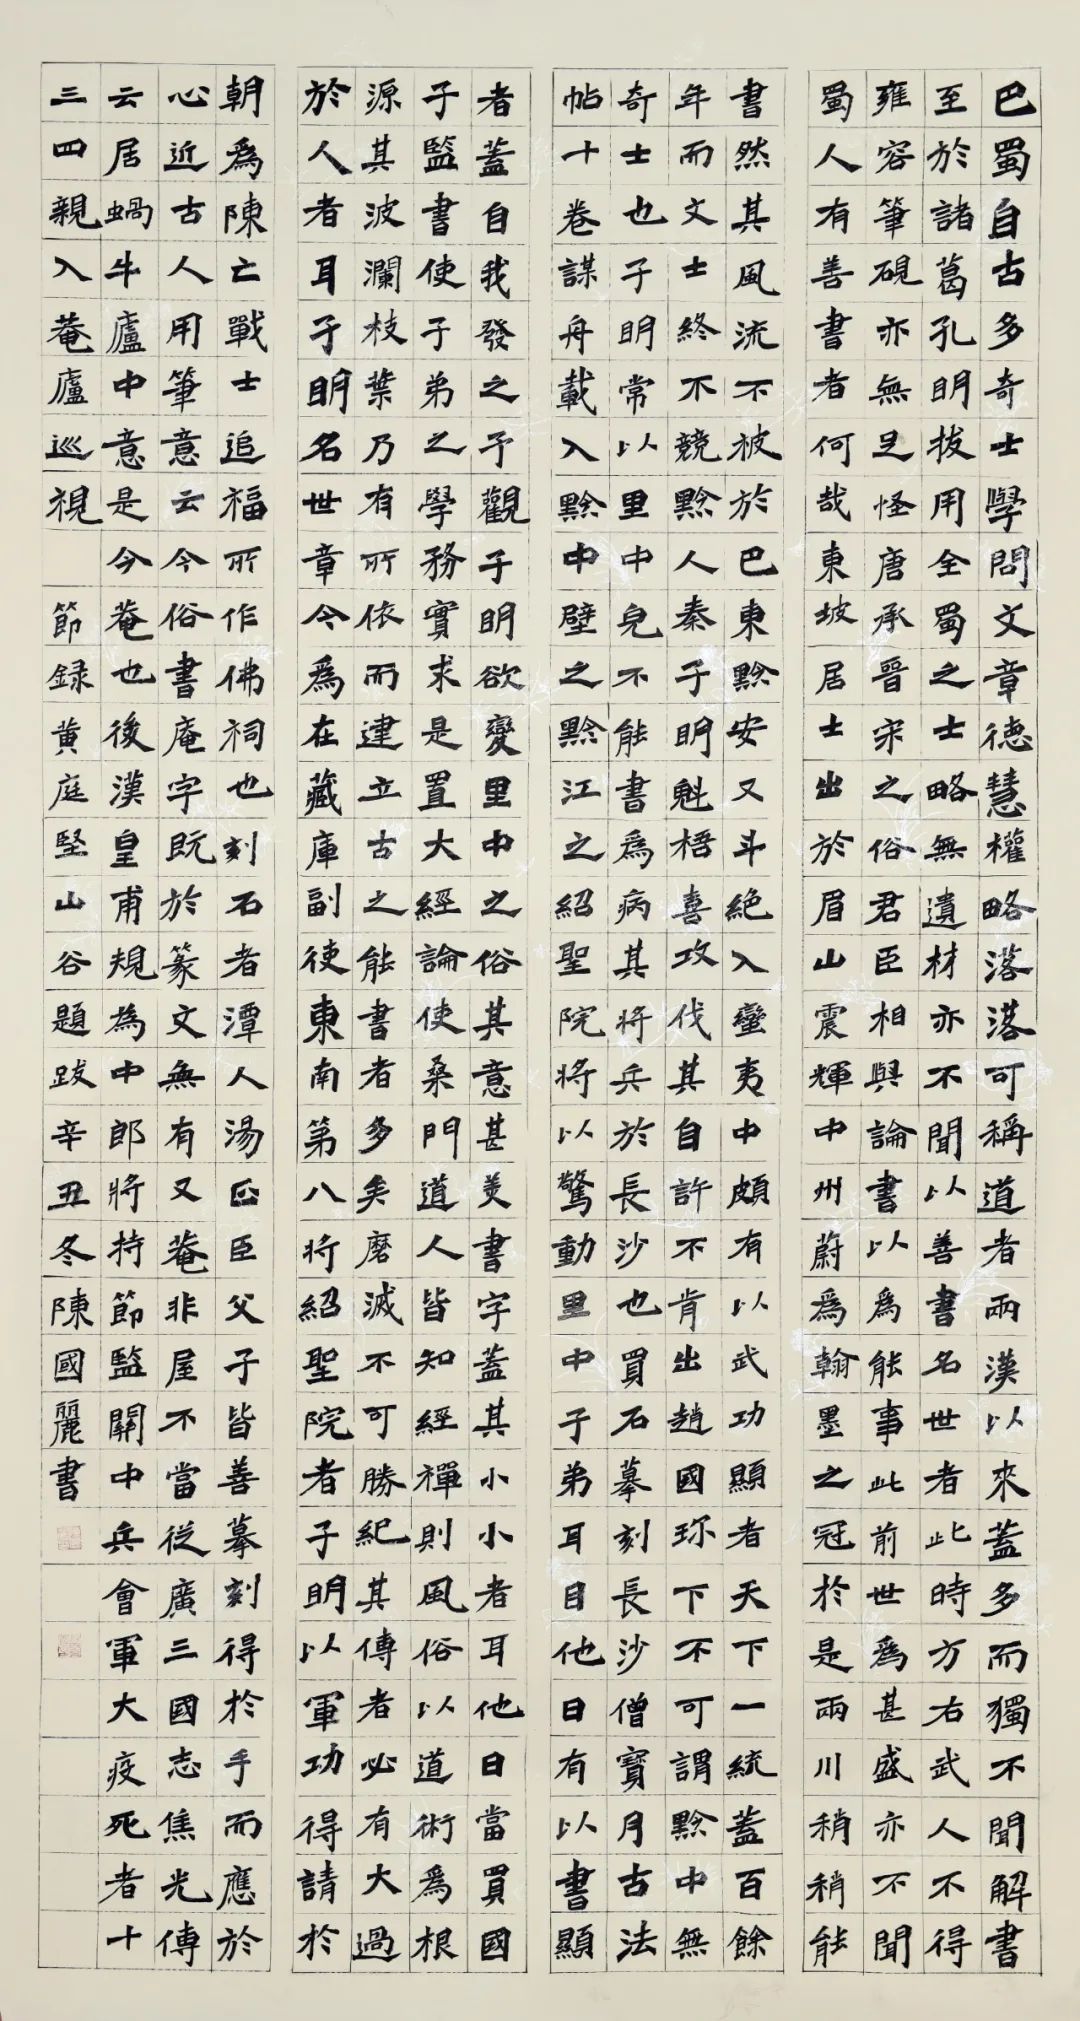 巴蜀自古多奇士學問文章德慧權略落落可稱道者兩漢以來蓋多而獨不聞解書
至於諸葛孔明拔用全蜀之士略無遺材亦不聞以善書名世者此時方右武人不得
雍容筆硯亦無足怪唐承晉宋之俗君臣相與論書以為能事此前世為甚盛亦不聞
蜀人有善書者何哉東坡居士出於眉山震輝中州蔚為翰墨之冠於是兩川稍稍能
書然其風流不被於巴東黔安又斗絕入蠻夷中頗有以武功顯者天下一統蓋百餘
年而文士終不競黔人秦子明魁梧喜攻伐其自許不肯出趙國珎下不可謂黔中無
奇士也子明常以里中皃不能書為病其將兵於長沙也買石摹刻長沙僧寶月古法
帖十卷謀舟載入黔中壁之黔江之紹聖院將以驚動里中子弟耳目他日有以書顯
者蓋自我發之予觀子明欲變里中之俗其意甚美書字蓋其小小者耳他日當買國
子監書使子弟之學務實求是置大經論使桑門道人皆知經禪則風俗以道術為根
源其波瀾枝葉乃有所依而建立古之能書者多矣磨滅不可勝紀其傳者必有大過
於人者耳子明名世章今為在藏庫副使東南第八將紹聖院者子明以軍功得請於
朝為陳亡戰士追福所作佛祠也刻石者潭人湯正臣父子皆善摹刻得於手而應於
心近古人用筆意云今俗書庵字既於篆文無有又菴非屋不當從廣三國志焦光傳
云居蝸牛廬中意是今菴也後漢皇甫規為中郎將持節監關中兵會軍大疫死者十
三四親入菴廬巡視 節録黄庭堅山谷題跋辛丑冬陳國麗書